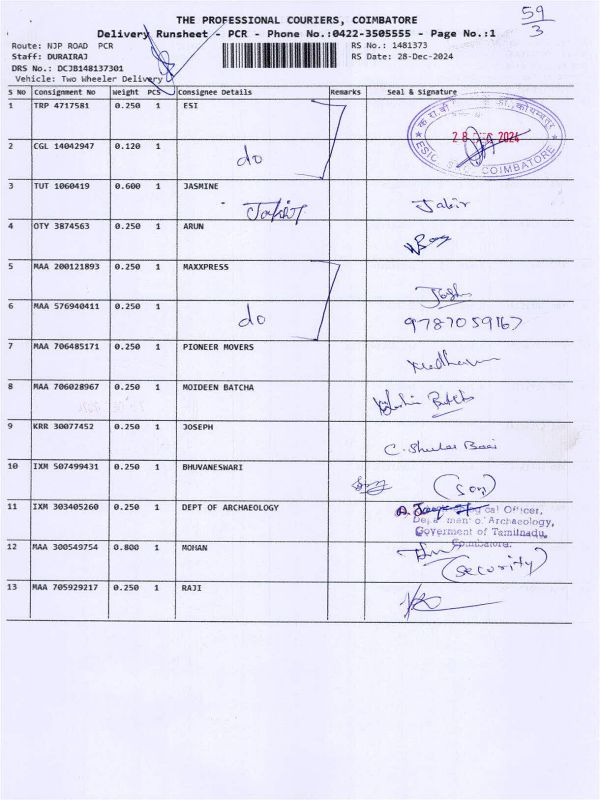 THE PROFESSIONAL COURIERS, COIMBATORE
59/3
Delivery Runsheet - PCR - Phone No.:0422-3505555 - Page No.:1
Route: NJP ROAD PCR RS No.: 1481373
Staff: DURAIRAJ RS Date: 28-Dec-2024
DRS No.: DCJB148137301
Vehicle: Two Wheeler Delivery
S No Consignment No Weight PCS Consignee Details Remarks Seal & Signature
1 TRP 4717581 0.250 1 ESI
28 2024
ESIC COIMBATORE
2 CGL 14042947 0.120 1
do
3 TUT 1060419 0.600 1 JASMINE
Jabir
4 OTY 3874563 0.250 1 ARUN
5 MAA 200121893 0.250 1 MAXXPRESS
6 MAA 576940411 0.250 1
do 9787059167
7 MAA 706485171 0.250 1 PIONEER MOVERS
Madhavan
8 MAA 706028967 0.250 1 MOIDEEN BATCHA
Batcha
9 KRR 30077452 0.250 1 JOSEPH
10 IXM 507499431 0.250 1 BHUVANESWARI
(Son)
11 IXM 303405260 0.250 1 DEPT OF ARCHAEOLOGY
Officer,
Department of Archaeology,
Goverment of Tamilnadu,
Coimbatore.
12 MAA 300549754 0.800 1 MOHAN
(Security)
13 MAA 705929217 0.250 1 RAJI